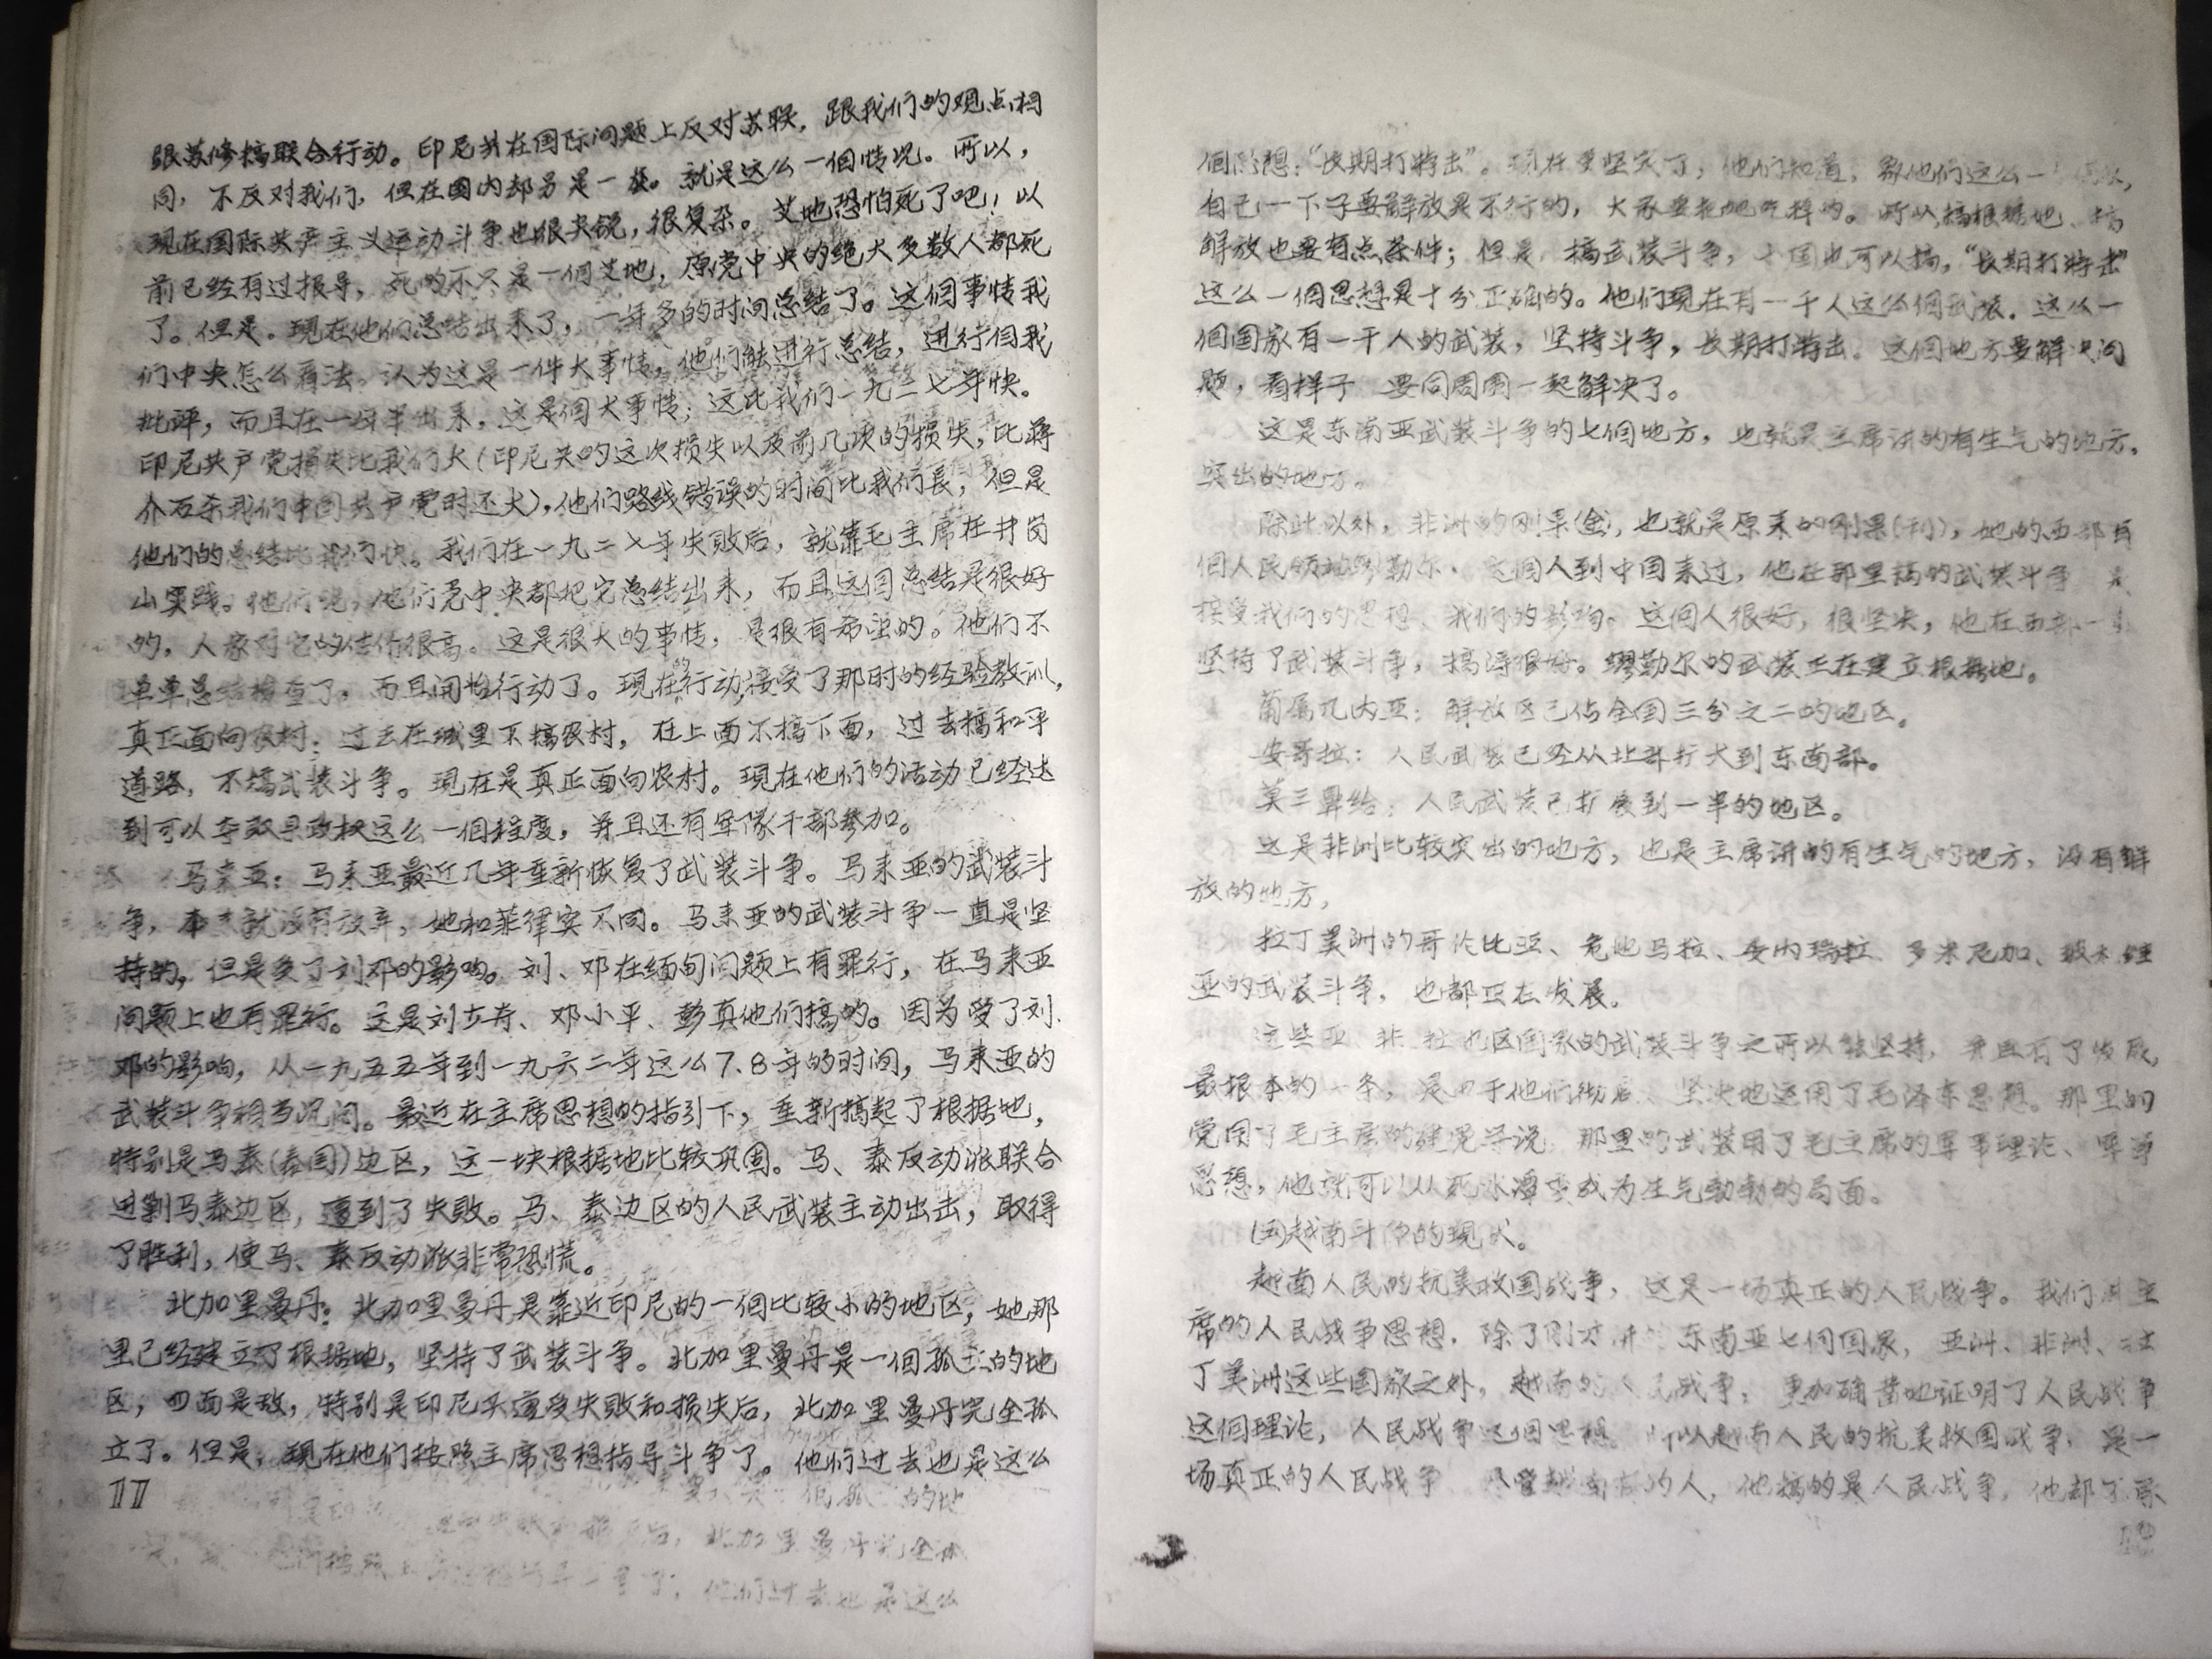 跟苏修搞联合行动。印尼共在国际问题上反对苏联，跟我们的观点相
同，不反对我们，但在国内却另是一套。就是这么一個情况。所以，
现在国际共产主义运动斗争也很尖锐，很复杂。艾地恐怕死了吧！以
前已经有过报导，死的不只是一個艾地，原党中央的绝大多数人都死
了。但是。现在他们总结出来了，一年多的时间总结了。这個事情我
们中央怎么看法。认为这是一件大事情，他们能进行总结，进行自我
批评，而且在一年半出来，这是個大事情；这比我们一九二七年快。
印尼共产党损失比我们大（印尼共的这次损失以及前几次的损失，比蒋
介石杀我们中国共产党时还大），他们路线错误的时间比我们长，但是
他们的总结比我们快。我们在一九二七年失败后，就靠毛主席在井岗
山实践。他们呢，他们党中央都把它总结出来，而且这個总结是很好
的，人家对它的估价很高。这是很大的事情，是很有希望的。他们不
单单总结检查了，而且开始行动了。现在的行动，接受了那时的经验教训，
真正面向农村；过去在城里不搞农村，在上面不搞下面，过去搞和平
道路，不搞武装斗争。现在是真正面向农村。现在他们的活动已经达
到可以夺取县政权这么一個程度，并且还有军队干部参加。
马来亚：马来亚最近几年重新恢复了武装斗争。马来亚的武装斗
争，本来就没有放弃，她和菲律宾不同。马来亚的武装斗争一直是坚
持的，但是受了刘邓的影响。刘、邓在缅甸问题上有罪行，在马来亚
问题上也有罪行。这是刘少奇、邓小平、彭真他们搞的。因为受了刘、
邓的影响，从一九五五年到一九六二年这么7.8年的时间，马来亚的
武装斗争相当沉闷。最近在主席思想的指引下，重新搞起了根据地，
特别是马泰（泰国）边区，这一块根据地比较巩固。马、泰反动派联合
进剿马泰边区，遭到了失败。马、泰边区的人民武装主动出击，取得
了胜利，使马、泰反动派非常恐慌。
北加里曼丹：北加里曼丹是靠近印尼的一個比较小的地区，她那
里已经建立了根据地，坚持了武装斗争。北加里曼丹是一個孤立的地
区，四面是敌，特别是印尼共遭受失败和损失后，北加里曼丹完全孤
立了。但是，现在他们按照主席思想指导斗争了。他们过去也是这么
17
個思想：“长期打游击”。现在更坚定了，他们知道，象他们这么一
自己一下子要解放是不行的，大家要把他吃掉的。所以搞根据地、搞
解放也要有点条件；但是，搞武装斗争，小国也可以搞，“长期打游击”
这么一個思想是十分正确的。他们现在有一千人这么個武装，这么一
個国家有一千人的武装，坚持斗争，长期打游击。这個地方要解决问
题，看样子 要同周围一起解决了。
这是东南亚武装斗争的七個地方，也就是主席讲的有生气的地方，
突出的地方。
除此以外，非洲的刚果（金），也就是原来的刚果（利），她的西部有
個人民领袖缪勒尔，这個人到中国来过，他在那里搞的武装斗争 是
接受我们的思想、我们的影响。这個人很好，很坚决，他在西部一直
坚持了武装斗争，搞得很好。缪勒尔的武装正在建立根据地。
葡属几内亚：解放区已佔全国三分之二的地区。
安哥拉：人民武装已经从北部扩大到东南部。
莫三鼻给：人民武装已扩展到一半的地区。
这是非洲比较突出的地方，也是主席讲的有生气的地方，没有解
放的地方，
拉丁美洲的哥伦比亚、危地马拉、委内瑞拉、多米尼加、玻利维
亚的武装斗争，也都正在发展。
这些亚、非、拉地区国家的武装斗争之所以能坚持，并且有了发展，
最根本的一条，是由于他们彻底、坚决地运用了毛泽东思想。那里的
党用了毛主席的建党学说，那里的武装用了毛主席的军事理论、军事
思想，他就可以从死水潭变成为生气勃勃的局面。
越南斗争的现状。
越南人民的抗美救国战争，这是一场真正的人民战争。我们讲主
席的人民战争思想，除了刚才讲的东南亚七個国家，亚洲、非洲、拉
丁美洲这些国家之外，越南的人民战争，更加确凿地证明了人民战争
这個理论，人民战争这個思想。所以越南人民的抗美救国战争，是一
场真正的人民战争 尽管越南 的人，他搞的是人民战争，他却不承